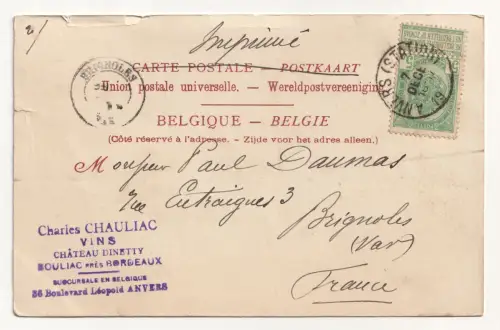 Imprimé
CARTE POSTALE — POSTKAART
Union postale universelle. — Wereldpostvereeniging
BELGIQUE – BELGIE
(Côté réservé à l'adresse. - Zijde voor het adres alleen.)
M onsieur Paul Daumas
Rue Entraigues 3
Brignoles
(Var)
France
Charles CHAULIAC
VINS
CHÂTEAU DINETTY
BOULIAC PRÈS BORDEAUX
SUCCURSALE EN BELGIQUE
36 Boulevard Léopold ANVERS
BRIGNOLES
ANVERS (STATION)
7
DECE